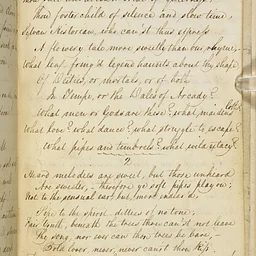 Thou foster child of silence and slow time,
Sylvan Historian, who can'st thus express
A flowery tale more sweetly than our rhyme,
What leaf fring'd legend haunts about thy shape
Of Deities, or mortals, or of both
In Tempe, or the Dales of Arcady?
What men or Gods are these? what maidens loth?
What love? what dance? what struggle to escape?
What pipes and timbrels? what wild extacy?
2
Heard melodies are sweet, but those unheard
Are sweeter, therefore ye soft pipes play on;
Not to the sensual ear, but more endear'd,
Pipe to the spirit ditties of no tone;
Fair youth, beneath the trees thou can'st not leave
Thy song, nor ever can those trees be bare,
Bold lover, never, never can'st thou kiss,